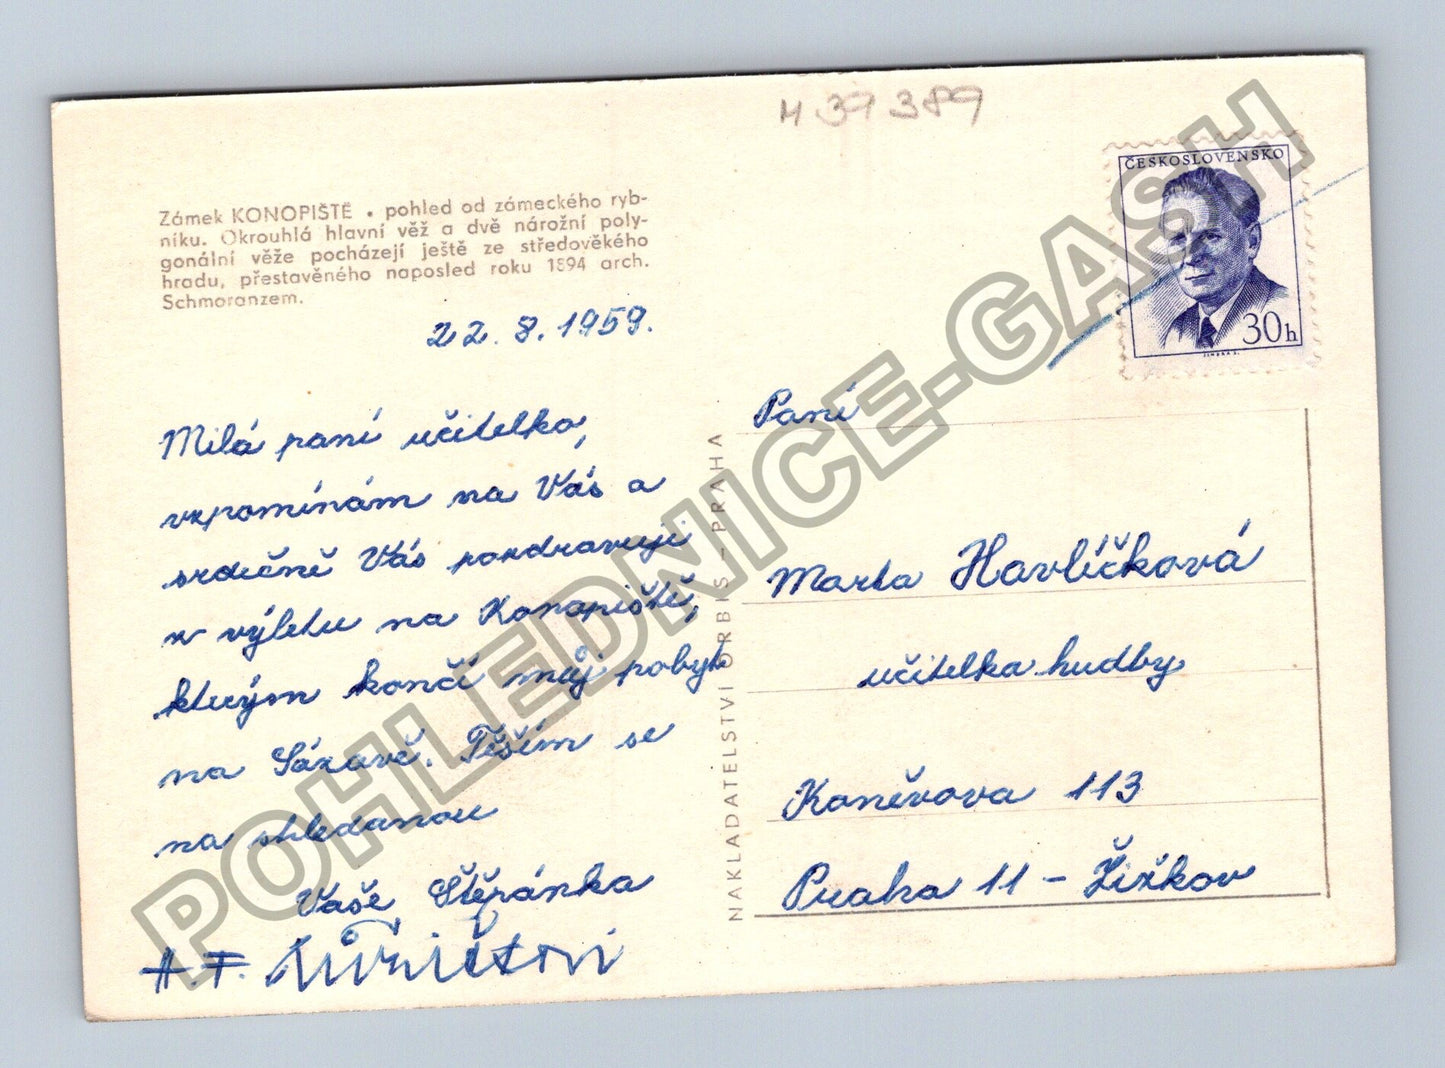 M 39 389
ČESKOSLOVENSKO
30h
Zámek KONOPIŠTĚ • pohled od zámeckého ryb-
níku. Okrouhlá hlavní věž a dvě nárožní poly-
gonální věže pocházejí ještě ze středověkého
hradu, přestavěného naposled roku 1894 arch.
Schmoranzem.
22. 8. 1959.
Milá paní učitelko,
vzpomínám na Vás a
srdečně Vás pozdravuji
z výletu na Konopiště,
kterým končí můj pobyt
na Sázavě. Těším se
na shledanou
Vaše Štěpánka
A. F.
NAKLADATELSTVÍ ORBIS – PRAHA
Paní
Marta Havlíčková
učitelka hudby
Koněvova 113
Praha 11 – Žižkov
POHLEDNICE-GASH